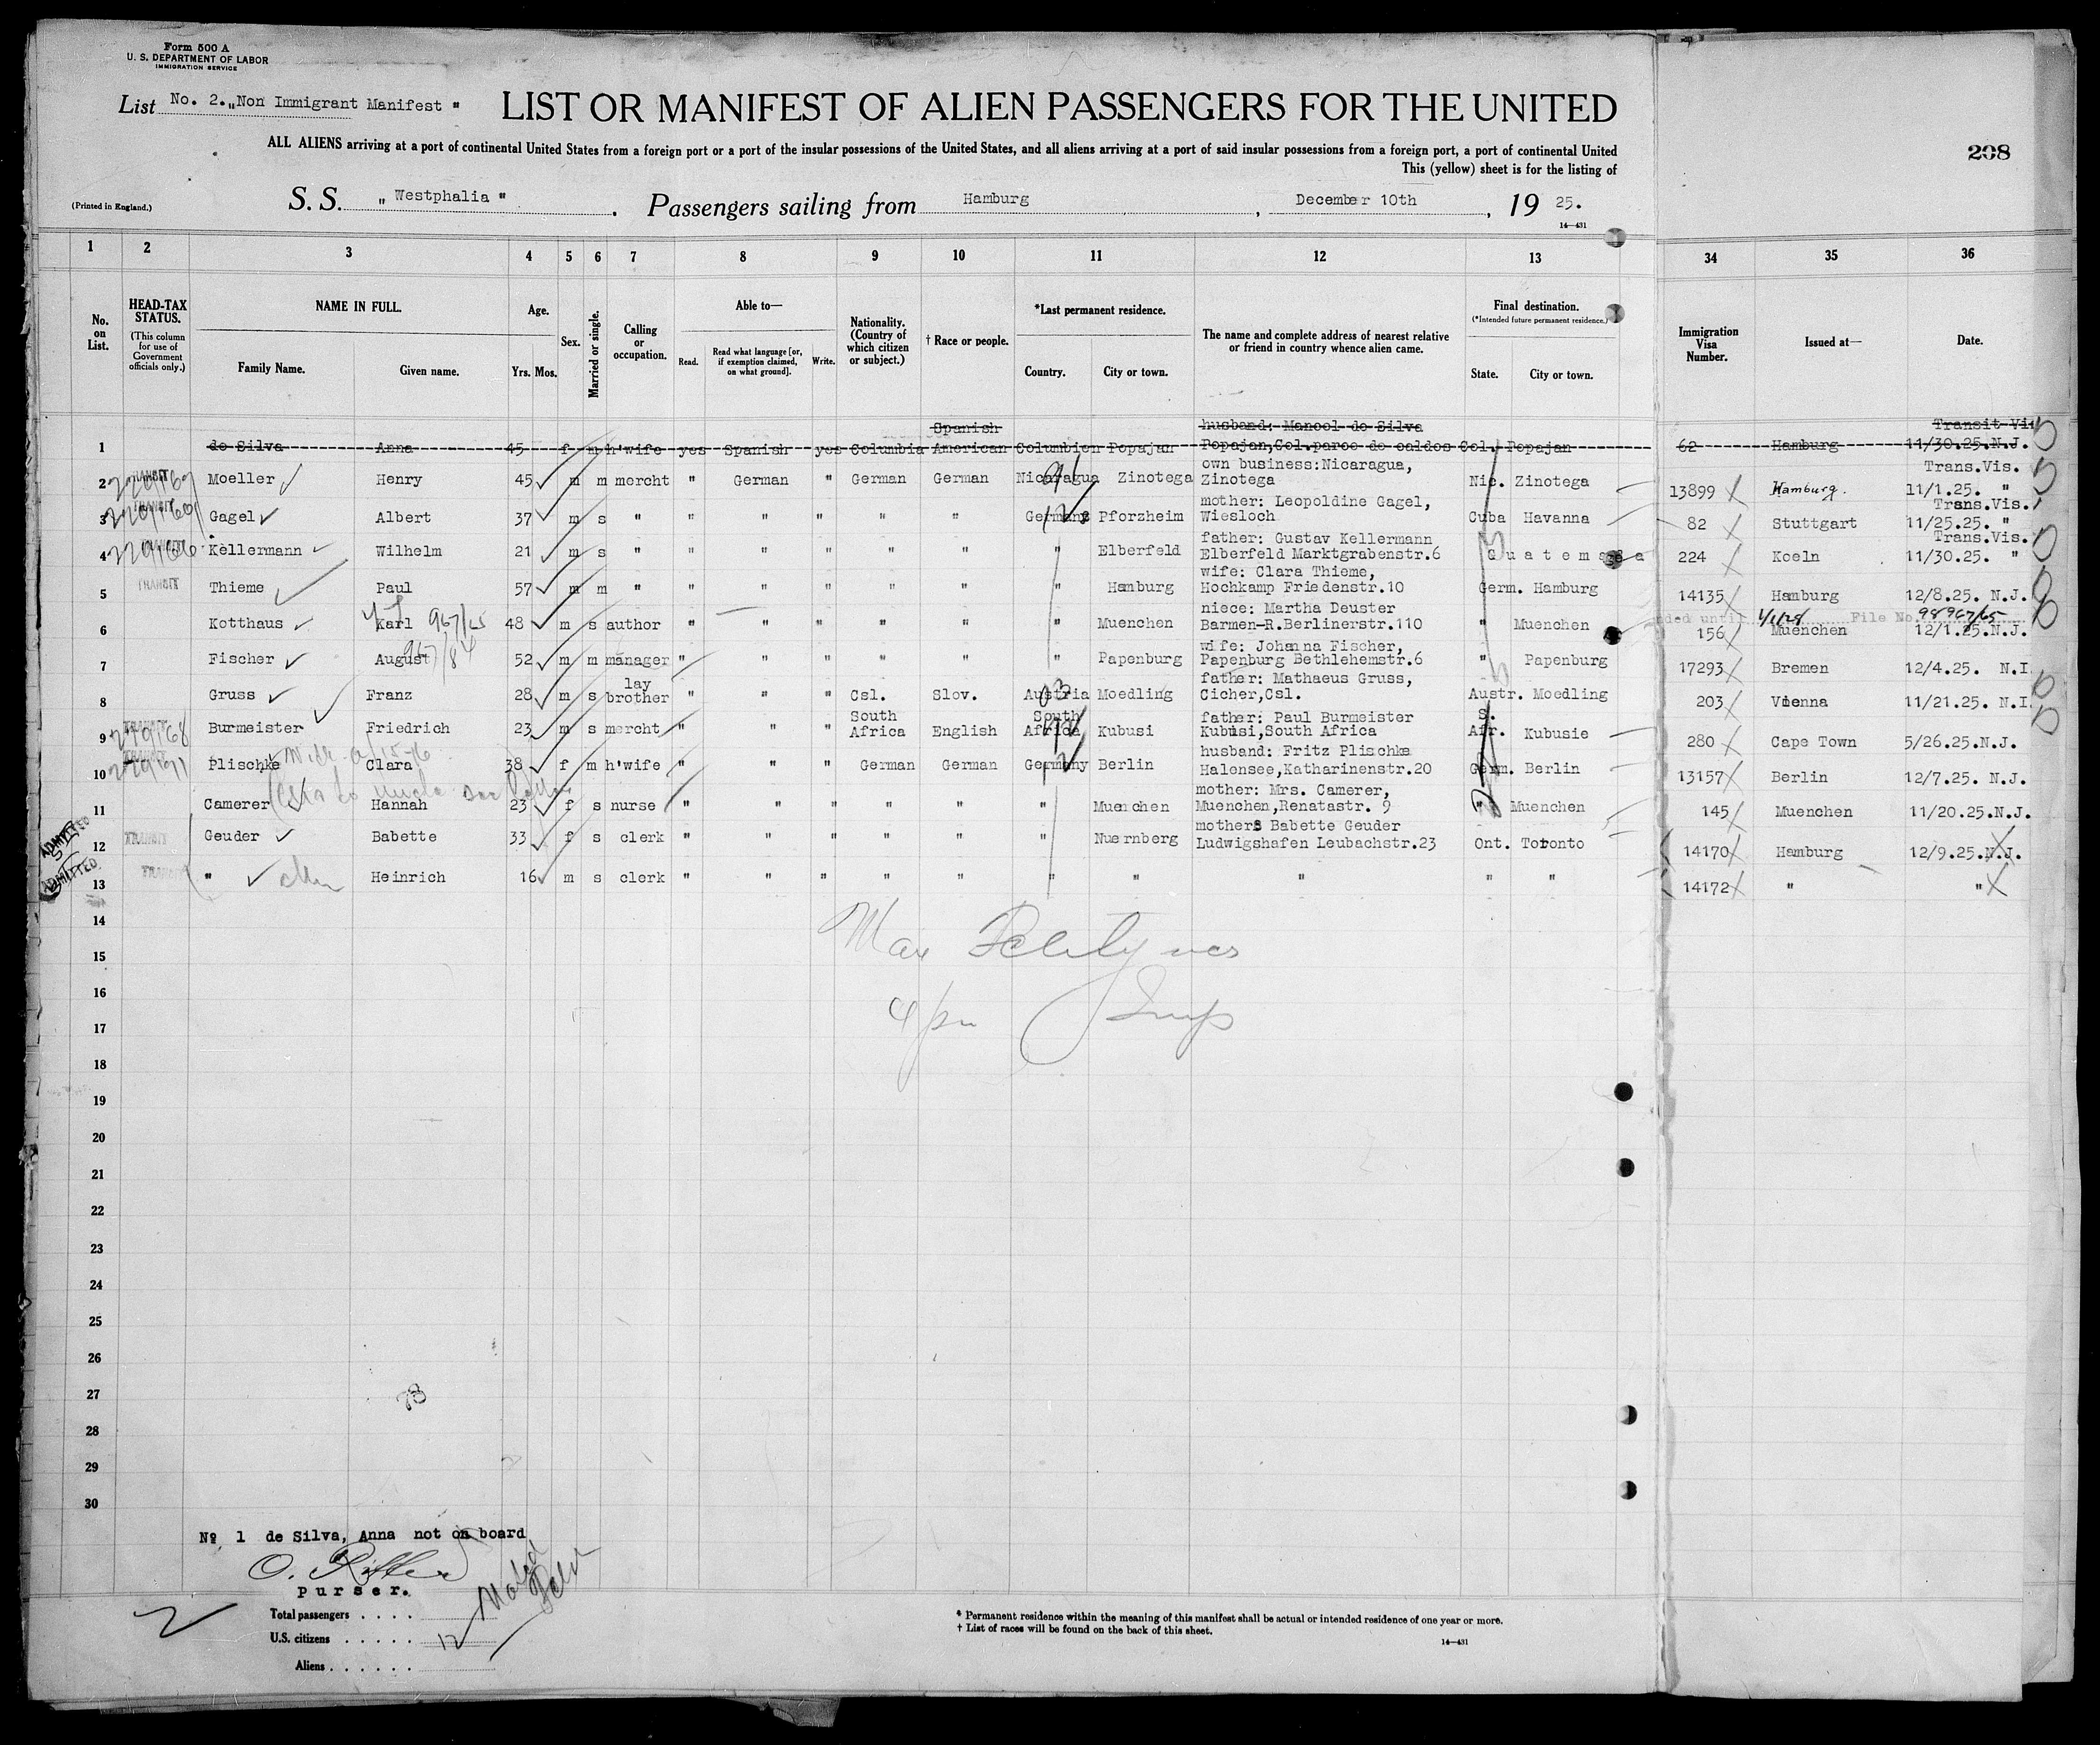 Form 500 A
U. S. DEPARTMENT OF LABOR
IMMIGRATION SERVICE
List No. 2. „Non Immigrant Manifest "
LIST OR MANIFEST OF ALIEN PASSENGERS FOR THE UNITED
ALL ALIENS arriving at a port of continental United States from a foreign port or a port of the insular possessions of the United States, and all aliens arriving at a port of said insular possessions from a foreign port, a port of continental United
This (yellow) sheet is for the listing of
208
(Printed in England.)
S. S. „ Westphalia " . Passengers sailing from Hamburg , December 10th , 19 25.
14—431
1 2 3 4 5 6 7 8 9 10 11 12 13 34 35 36
No. on List.
HEAD-TAX STATUS.
(This column for use of Government officials only.)
NAME IN FULL.
Family Name. Given name.
Age.
Yrs. Mos.
Sex.
Married or single.
Calling or occupation.
Able to—
Read. Read what language [or, if exemption claimed, on what ground]. Write.
Nationality. (Country of which citizen or subject.)
† Race or people.
*Last permanent residence.
Country. City or town.
The name and complete address of nearest relative or friend in country whence alien came.
Final destination.
(*Intended future permanent residence.)
State. City or town.
Immigration Visa Number.
Issued at—
Date.
Spanish husband: Manoel de Silva Transit Vi
1 de Silva Anna 45 f m h'wife yes Spanish yes Columbia American Columbien Popajan Popajan,Col.paroe de caldos Col. Popajan 62 Hamburg 11/30.25.N.J.
own business:Nicaragua, Trans.Vis.
2 TRANSIT Moeller Henry 45 m m mercht " German " German German Nicaragua Zinotega Zinotega Nic. Zinotega 13899 Hamburg. 11/1.25. "
mother: Leopoldine Gagel, Trans.Vis.
3 TRANSIT Gagel Albert 37 m s " " " " " " Germany Pforzheim Wiesloch Cuba Havanna 82 Stuttgart 11/25.25. "
father: Gustav Kellermann Trans.Vis.
4 TRANSIT Kellermann Wilhelm 21 m s " " " " " " " Elberfeld Elberfeld Marktgrabenstr.6 Guatemala 224 Koeln 11/30.25. "
wife: Clara Thieme,
5 TRANSIT Thieme Paul 57 m m " " " " " " " Hamburg Hochkamp Friedenstr.10 Germ. Hamburg 14135 Hamburg 12/8.25. N.J.
967/65 niece: Martha Deuster ded until 1/1/28 File No. 98967/65
6 Kotthaus Karl 48 m s author " " " " " " Muenchen Barmen-R.Berlinerstr.110 " Muenchen 156 Muenchen 12/1.25.N.J.
967/84 wife: Johanna Fischer,
7 Fischer August 52 m m manager " " " " " " Papenburg Papenburg Bethlehemstr.6 " Papenburg 17293 Bremen 12/4.25. N.I.
lay father: Mathaeus Gruss,
8 Gruss Franz 28 m s brother " " " Csl. Slov. Austria Moedling Cicher,Csl. Austr. Moedling 203 Vienna 11/21.25. N.I.
South South father: Paul Burmeister S.
9 TRANSIT Burmeister Friedrich 23 m s mercht " " " Africa English Africa Kubusi Kubusi,South Africa Afr. Kubusie 280 Cape Town 5/26.25.N.J.
husband: Fritz Plischke
10 TRANSIT Plischke Clara 38 f m h'wife " " " German German Germany Berlin Halensee,Katharinenstr.20 Germ. Berlin 13157 Berlin 12/7.25. N.J.
mother: Mrs. Camerer,
11 Camerer Hannah 23 f s nurse " " " " " " Muenchen Muenchen,Renatastr. 9 " Muenchen 145 Muenchen 11/20.25.N.J.
mothers Babette Geuder
12 ADMITTED TRANSIT Geuder Babette 33 f s clerk " " " " " " Nuernberg Ludwigshafen Leubachstr.23 Ont. Toronto 14170 Hamburg 12/9.25.N.J.
13 ADMITTED TRANSIT " Heinrich 16 m s clerk " " " " " " " " " " 14172 " "
14
15
16
4 pm
17
18
19
20
21
22
23
24
25
26
27
28
29
30
№ 1 de Silva, Anna not on board
O. Ritter
purser.
Total passengers . . . .
U.S. citizens . . . . . 12
Aliens . . . . . .
* Permanent residence within the meaning of this manifest shall be actual or intended residence of one year or more.
† List of races will be found on the back of this sheet.
14—431